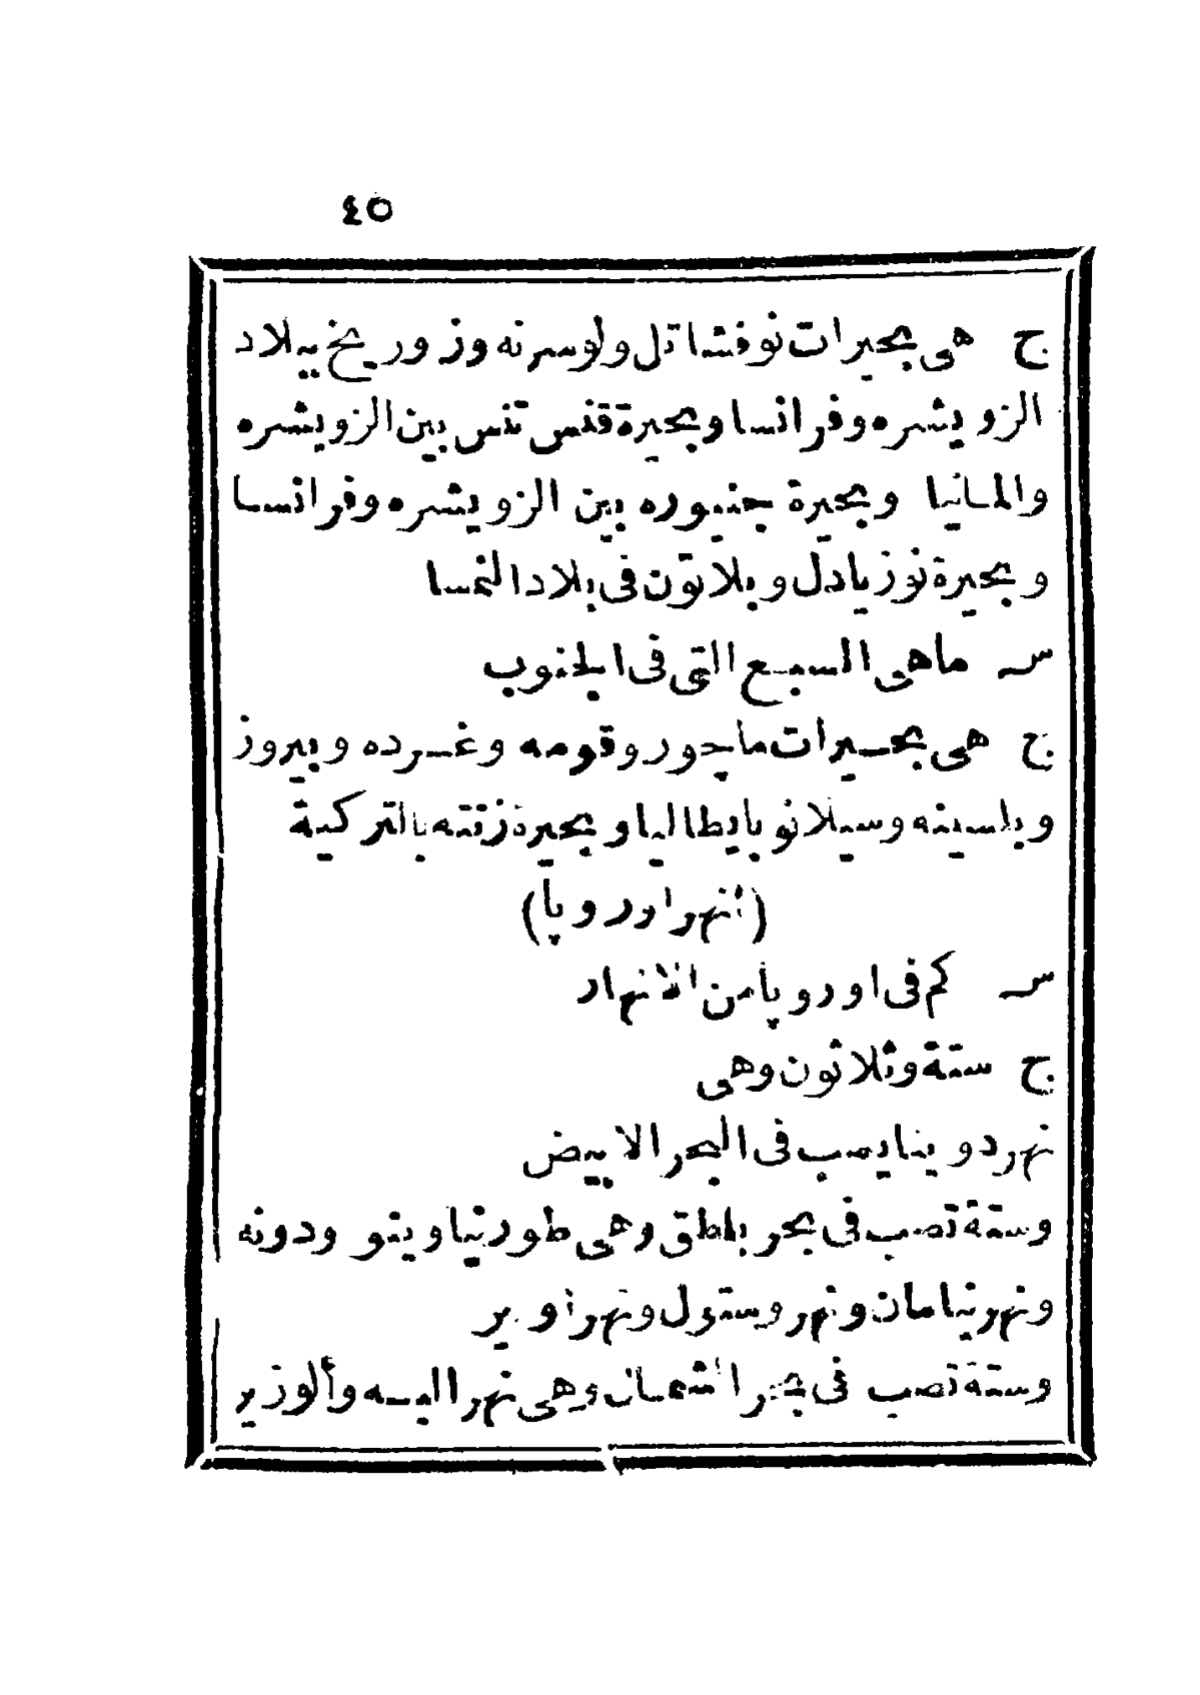 ٤٥
ج هى بحيرات نوفشاتل ولوسرنه وزوريخ ببلاد
الزويشره وفرانسا وبحيرة قنس تنس بين الزويشره
والمانيا وبحيرة جنيوره بين الزويشره وفرانسا
وبحيرة نوزيادل وبلاتون فى بلاد النمسا
س ماهى السبع التى فى الجنوب
ج هى بحيرات ماچور وقومه وغرده وبيروز
وبلسينه وسيلانو بايطاليا وبحيرة زنته بالتركية
(أنهر اوروپا)
س كم فى اوروپا من الانهار
ج ستة وثلاثون وهى
نهر دوينا يصب فى البحر الابيض
وستة تصب فى بحر بلطق وهى طورنيا وينو ودونه
ونهر نيامان ونهر وستول ونهر أوبر
وستة تصب فى بحر الشمان وهى نهر البسه وألوزير